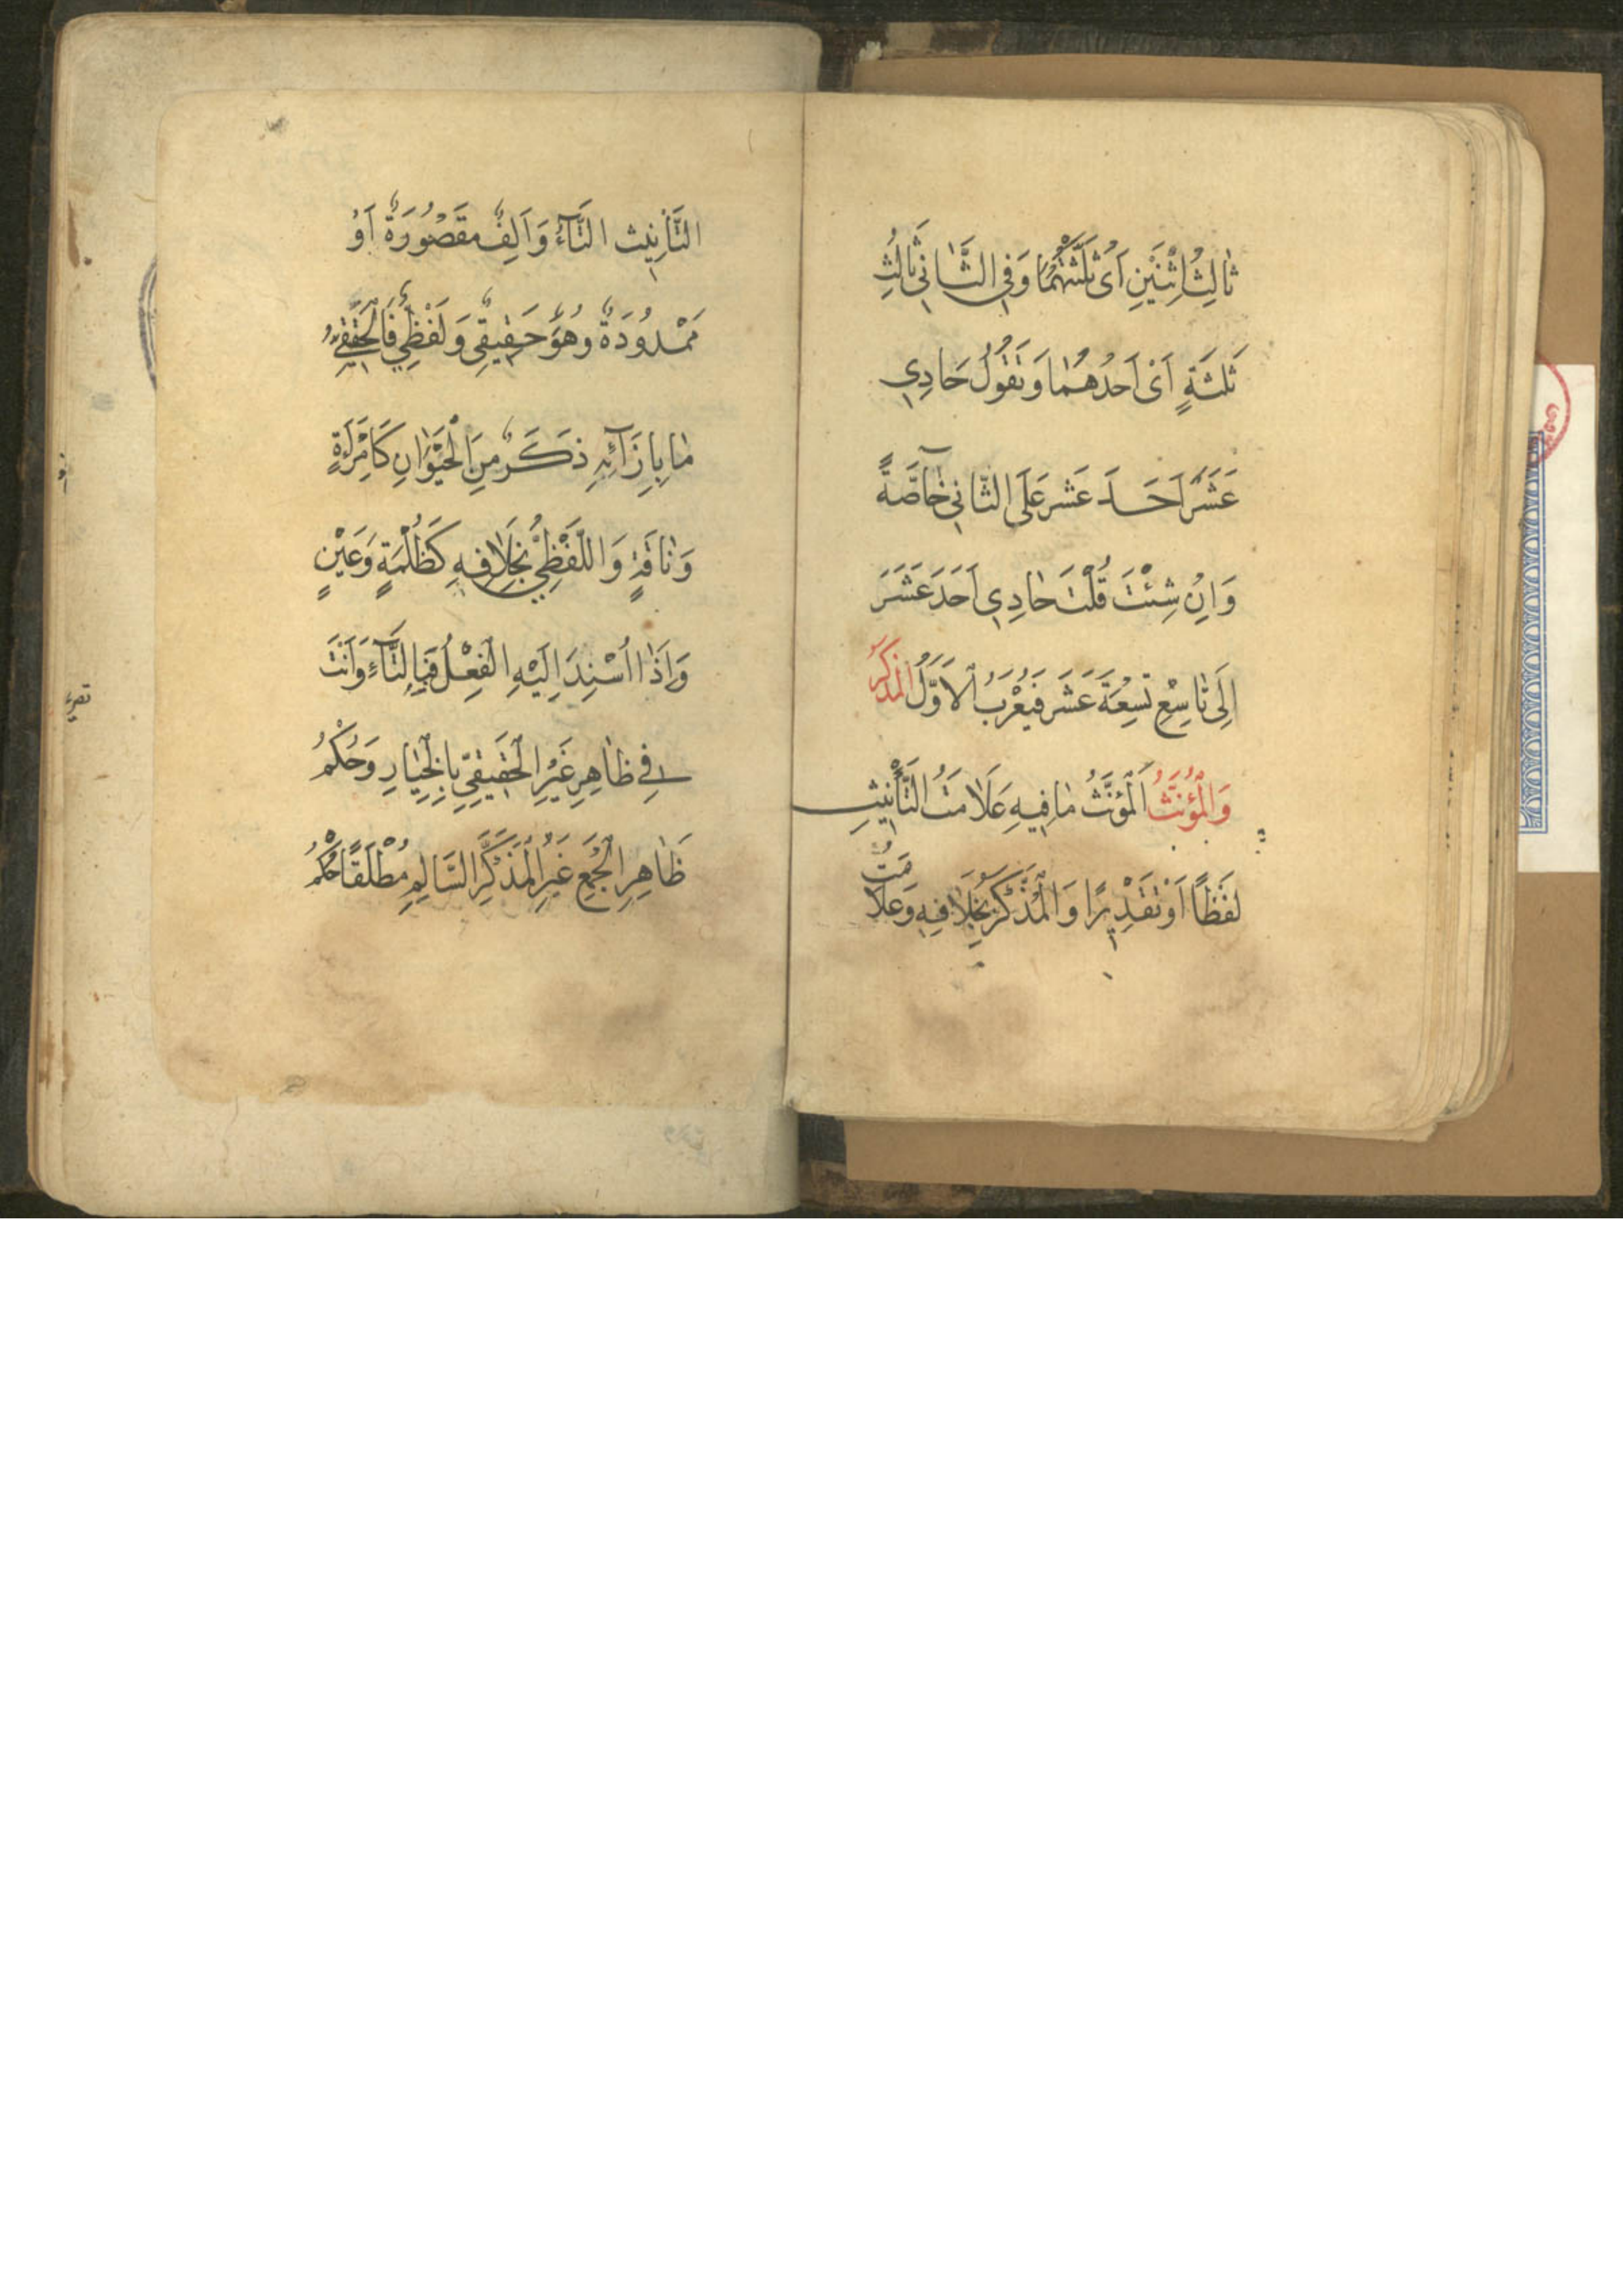 ثَالِثُ اثْنَيْنِ اَىْ ثَلَّثْتُهُمَا وَفِى الثَّانِى ثَالِثُ
ثَلٰثَةٍ اَىْ اَحَدُهُمَا وَتَقُولُ حَادِى
عَشَرَ اَحَدَ عَشَرَ عَلَى الثَّانِى خَآصَّةً
وَاِنْ شِئْتَ قُلْتَ حَادِى اَحَدَ عَشَرَ
اِلَى تَاسِعِ تِسْعَةَ عَشَرَ فَيُعْرَبُ الْاَوَّلُ الْمُذَكَّرُ
وَالْمُؤَنَّثُ اَلْمُؤَنَّثُ مَا فِيهِ عَلَامَتُ التَّأْنِيثِ
لَفْظًا اَوْ تَقْدِيرًا وَالْمُذَكَّرُ بِخِلَافِهِ وَعَلَامَتُ
التَّأْنِيثِ التَّآءُ وَاَلِفٌ مَقْصُورَةٌ اَوْ
مَمْدُودَةٌ وَهُوَ حَقِيقِىٌّ وَلَفْظِىٌّ فَالْحَقِيقِىُّ
مَا بِاِزَآئِهِ ذَكَرٌ مِنَ الْحَيَوَانِ كَامْرَاَةٍ
وَنَاقَةٍ وَاللَّفْظِىُّ بِخِلَافِهِ كَظُلْمَةٍ وَعَيْنٍ
وَاِذَا اُسْنِدَ اِلَيْهِ الْفِعْلُ فَبِالتَّآءِ وَاَنْتَ
فِى ظَاهِرِ غَيْرِ الْحَقِيقِىِّ بِالْخِيَارِ وَحُكْمُ
ظَاهِرِ الْجَمْعِ غَيْرِ الْمُذَكَّرِ السَّالِمِ مُطْلَقًا حُكْمُ